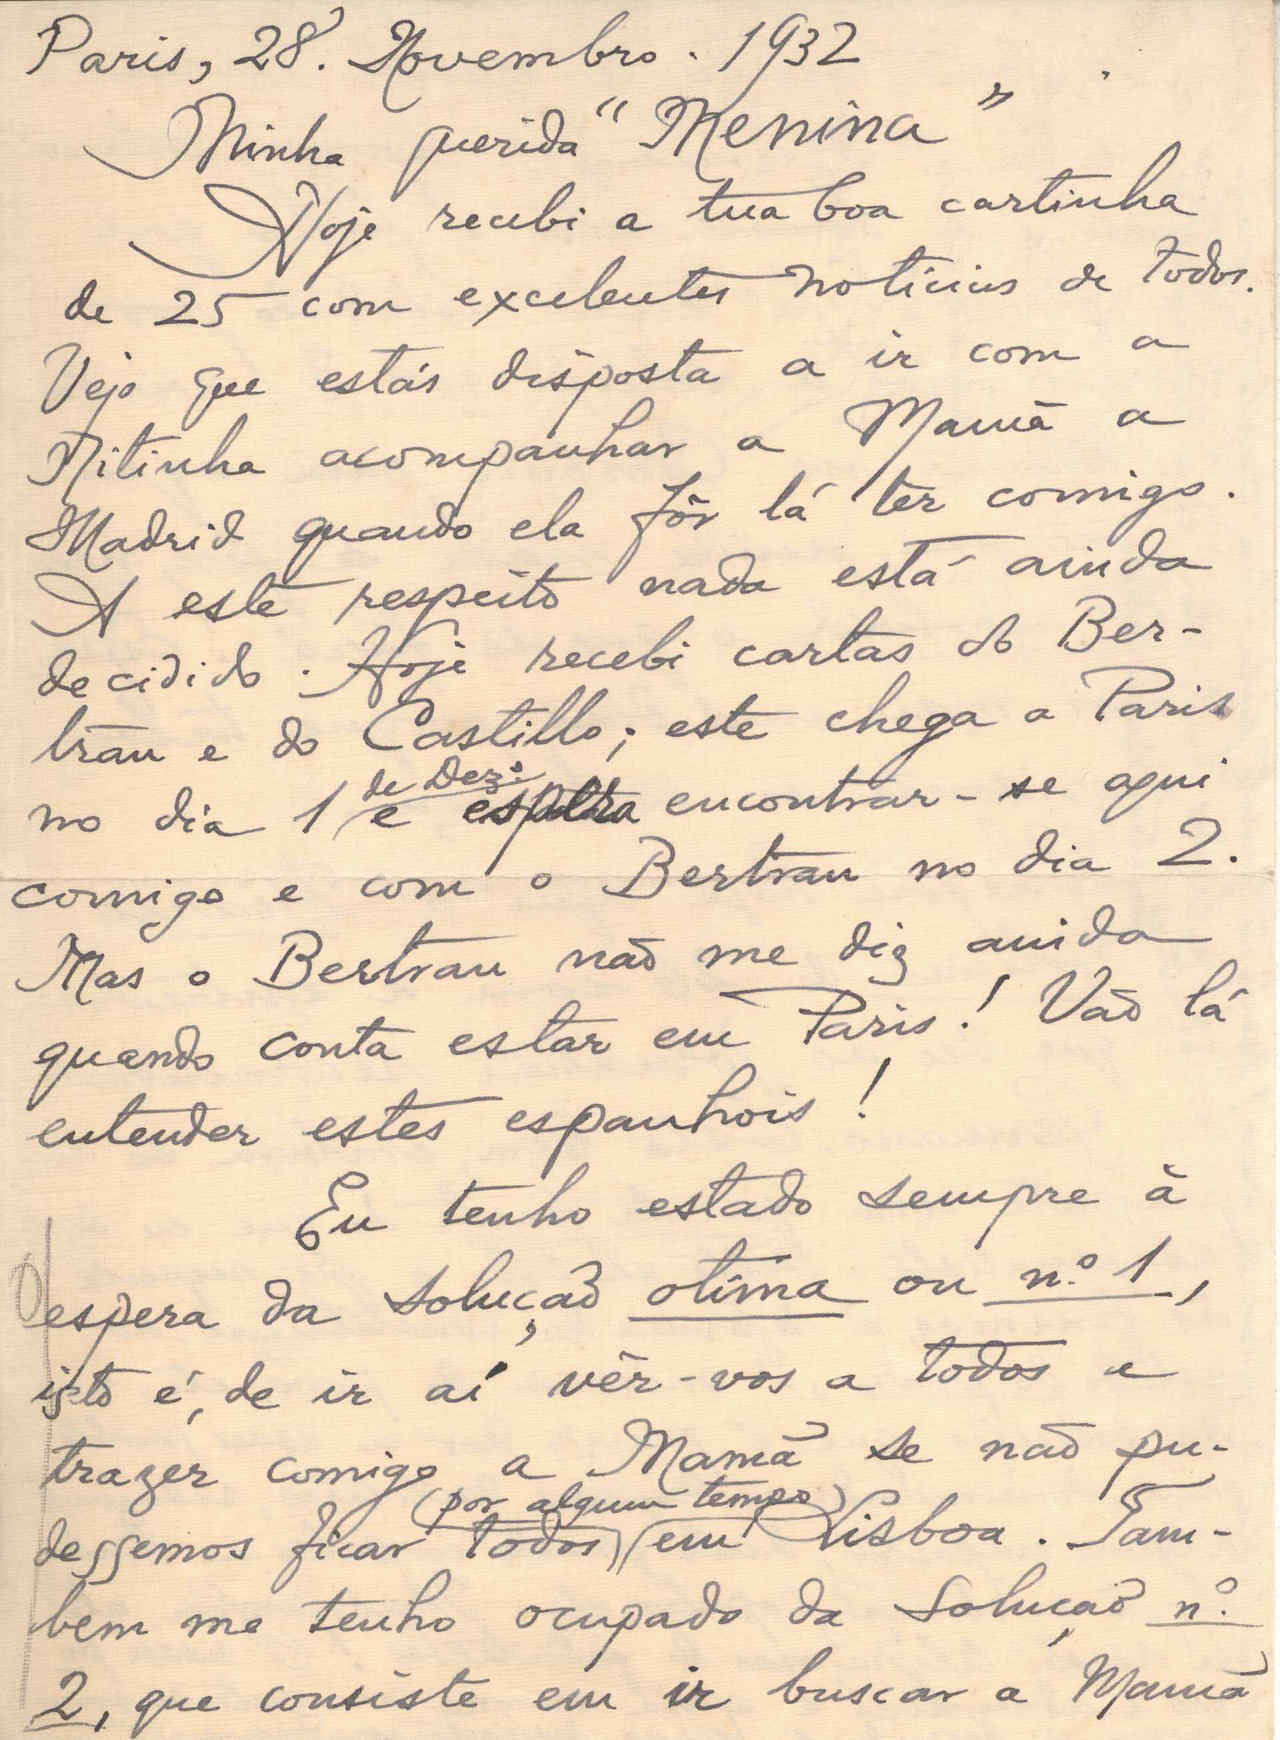 Paris, 28. Novembro. 1932
Minha querida "Menina"
Hoje recebi a tua boa cartinha
de 25 com excelentes noticias de todos.
Vejo que estás disposta a ir com a
Mitinha acompanhar a Mamã a
Madrid quando ela fôr lá ter comigo.
A este respeito nada está ainda
decidido. Hoje recebi cartas do Ber-
tran e do Castillo; este chega a Paris
no dia 1 de Dez.º e espera encontrar-se aqui
comigo e com o Bertran no dia 2.
Mas o Bertran não me diz ainda
quando conta estar em Paris! Vão lá
entender estes espanhois!
Eu tenho estado sempre à
espera da solução otima ou n.º 1,
isto é, de ir aí vêr-vos a todos e
trazer comigo a Mamã se não pu-
dessemos ficar todos (por algum tempo) em Lisboa. Tam-
bem me tenho ocupado da solução n.º
2, que consiste em ir buscar a Mamã